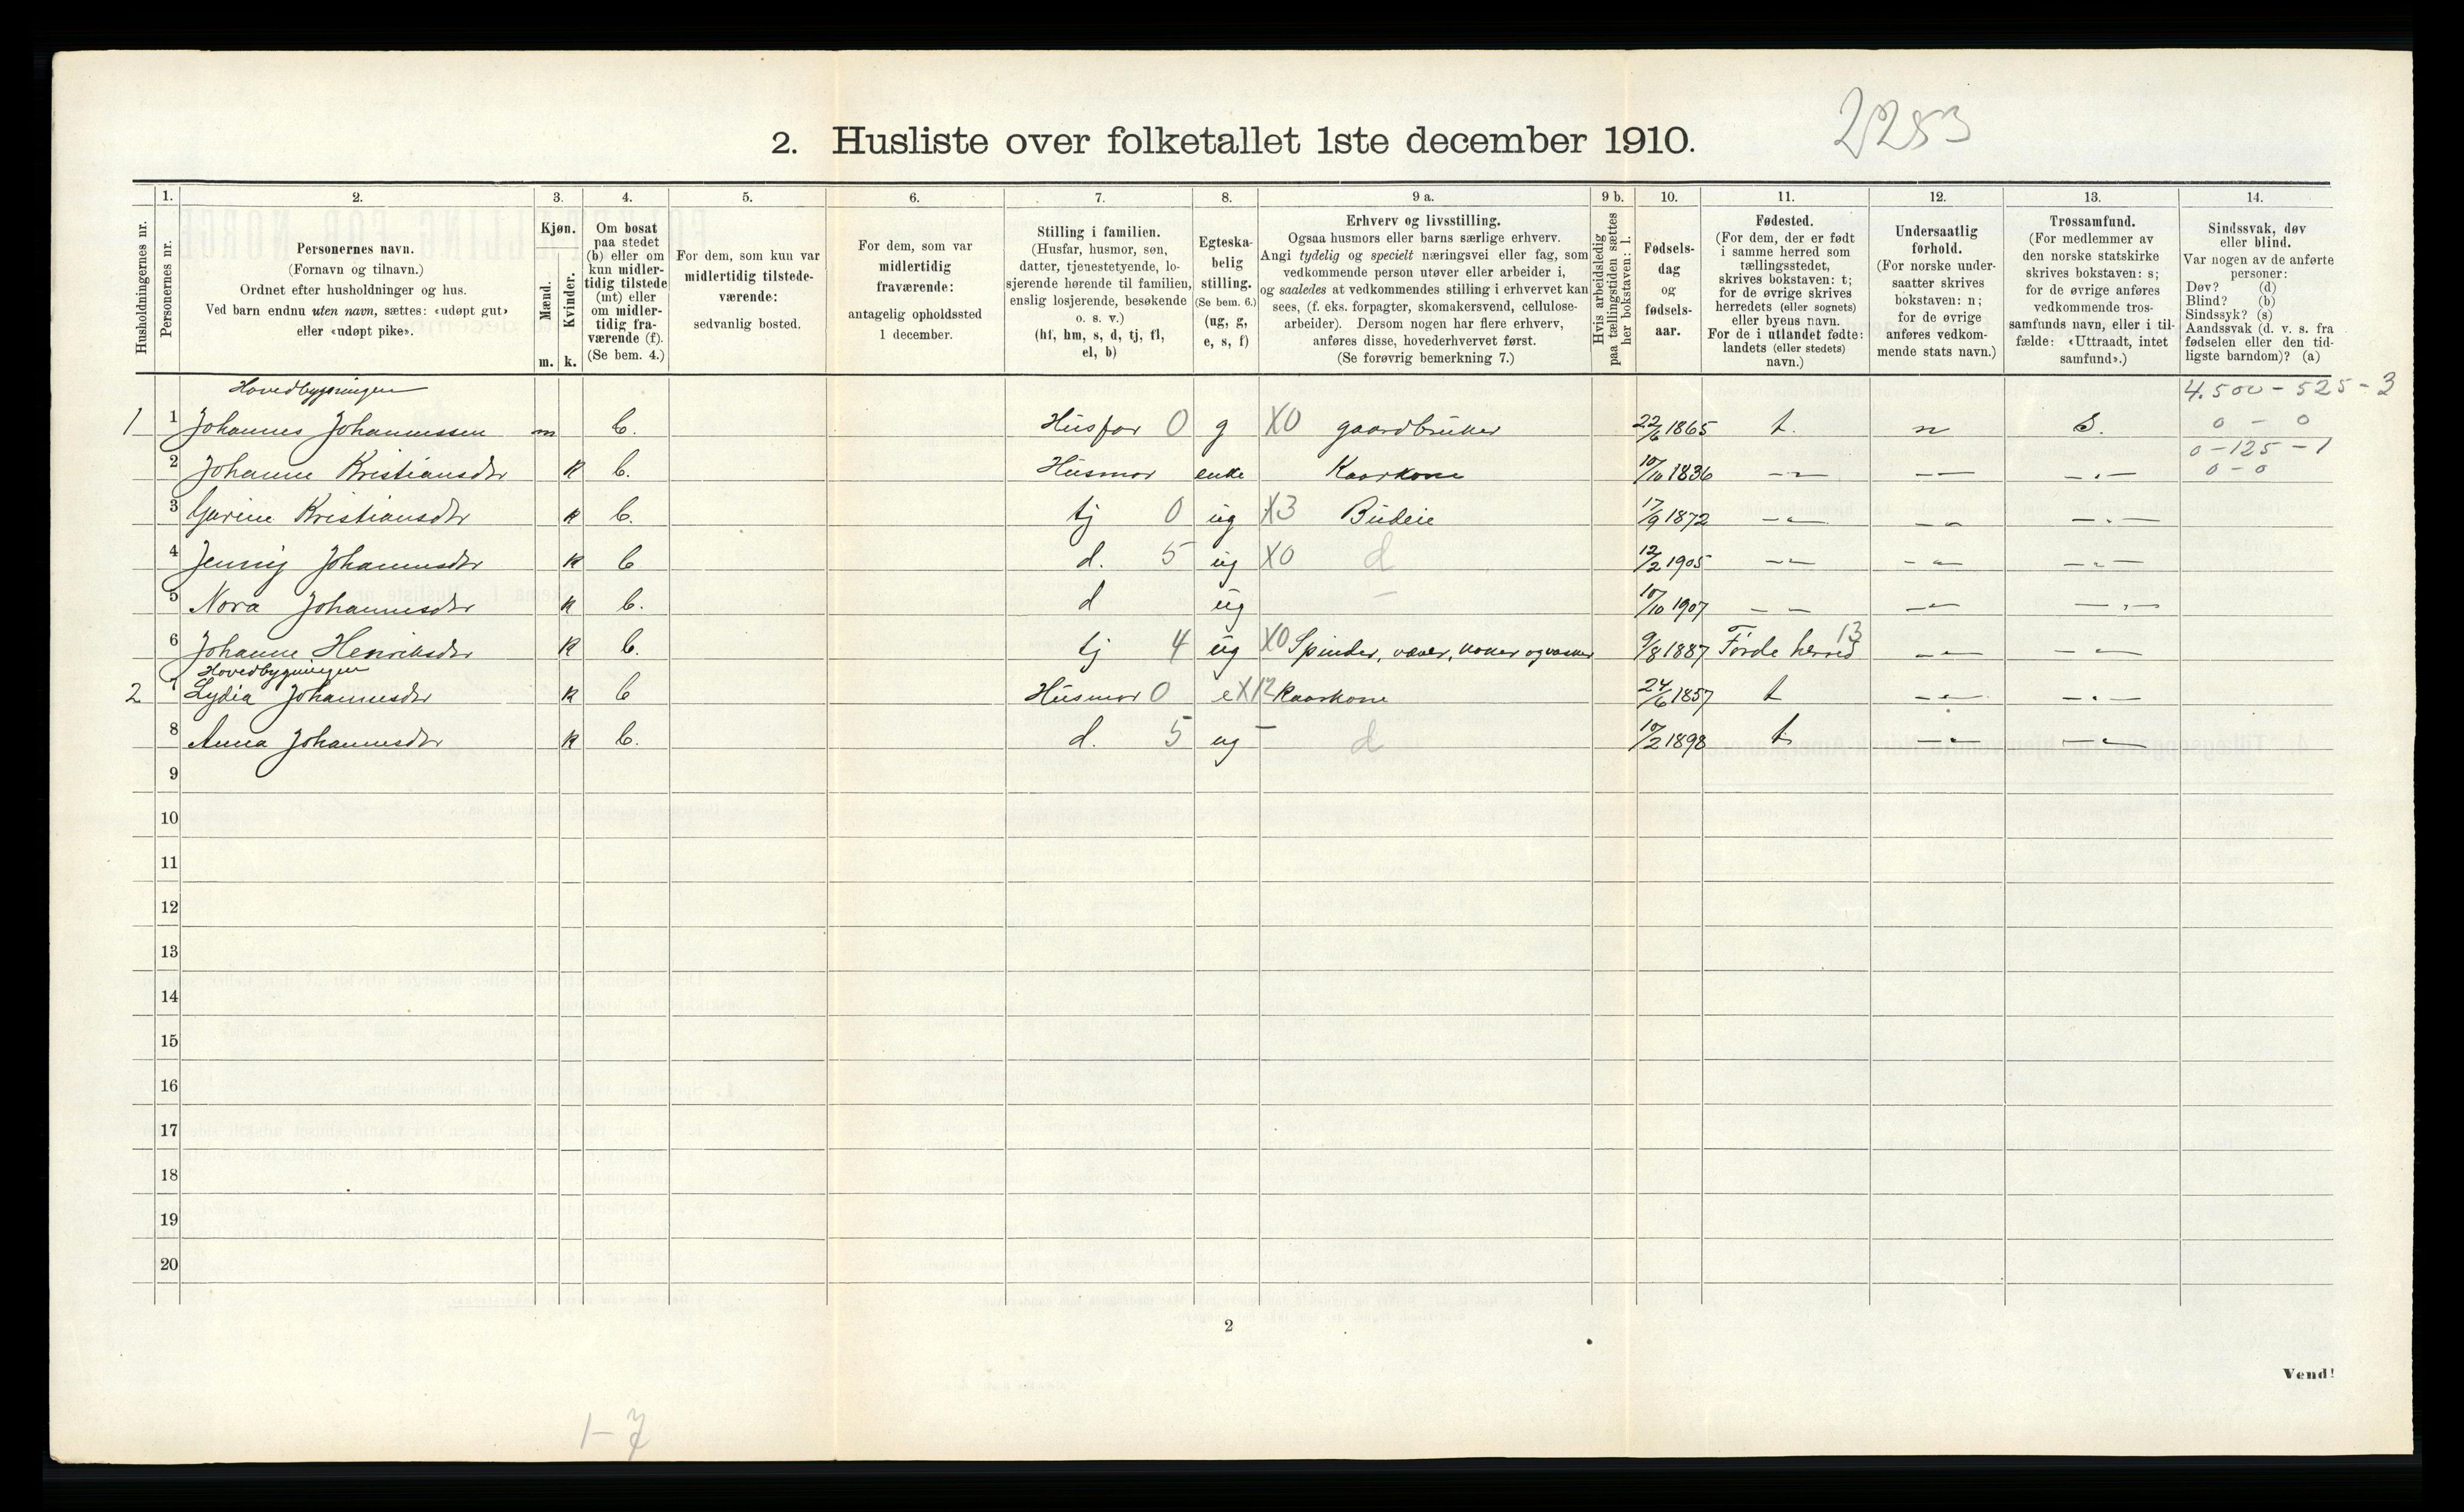 2253
2. Husliste over folketallet 1ste december 1910.
Husholdningernes nr.
1.
Personernes nr.
2.
Personernes navn.
(Fornavn og tilnavn.)
Ordnet efter husholdninger og hus.
Ved barn endnu uten navn, sættes: «udøpt gut»
eller «udøpt pike».
3.
Kjøn.
Mænd.
Kvinder.
m. k.
4.
Om bosat
paa stedet
(b) eller om
kun midler-
tidig tilstede
(mt) eller
om midler-
tidig fra-
værende (f).
(Se bem. 4.)
5.
For dem, som kun var
midlertidig tilstede-
værende:
sedvanlig bosted.
6.
For dem, som var
midlertidig
fraværende:
antagelig opholdssted
1 december.
7.
Stilling i familien.
(Husfar, husmor, søn,
datter, tjenestetyende, lo-
sjerende hørende til familien,
enslig losjerende, besøkende
o. s. v.)
(hf, hm, s, d, tj, fl,
el, b)
8.
Egteska-
belig
stilling.
(Se bem. 6.)
(ug, g,
e, s, f)
9 a.
Erhverv og livsstilling.
Ogsaa husmors eller barns særlige erhverv.
Angi tydelig og specielt næringsvei eller fag, som
vedkommende person utøver eller arbeider i,
og saaledes at vedkommendes stilling i erhvervet kan
sees, (f. eks. forpagter, skomakersvend, cellulose-
arbeider). Dersom nogen har flere erhverv,
anføres disse, hovederhvervet først.
(Se forøvrig bemerkning 7.)
9 b.
Hvis arbeidsledig
paa tællingstiden sættes
her bokstaven: l.
10.
Fødsels-
dag
og
fødsels-
aar.
11.
Fødested.
(For dem, der er født
i samme herred som
tællingsstedet,
skrives bokstaven: t;
for de øvrige skrives
herredets (eller sognets)
eller byens navn.
For de i utlandet fødte:
landets (eller stedets)
navn.)
12.
Undersaatlig
forhold.
(For norske under-
saatter skrives
bokstaven: n;
for de øvrige
anføres vedkom-
mende stats navn.)
13.
Trossamfund.
(For medlemmer av
den norske statskirke
skrives bokstaven: s;
for de øvrige anføres
vedkommende tros-
samfunds navn, eller i til-
fælde: «Uttraadt, intet
samfund».)
14.
Sindssvak, døv
eller blind.
Var nogen av de anførte
personer:
Døv? (d)
Blind? (b)
Sindssyk? (s)
Aandssvak (d. v. s. fra
fødselen eller den tid-
ligste barndom)? (a)
Hovedbygningen 4.500 - 525 - 3
1 1 Johannes Johannessen m b. Husfar 0 g X0 gaardbruker 22/6 1865 t. n S. 0 - 0
0 - 125 - 1
2 Johanne Kristiansdtr k b. Husmor enke Kaarkone 10/10 1836 — — — 0 - 0
3 Gurine Kristiansdtr k b. tj 0 ug X3 Budeie 17/9 1872 — — —
4 Jenny Johannesdtr k b d. 5 ug X0 d 12/2 1905 — — —
5 Nora Johannesdtr k b. d ug — 10/10 1907 — — —
6 Johanne Henriksdtr k b. tj 4 ug X0 Spinder, væver, koker og vasker 9/8 1887 Førde herred 13 — —
Hovedbygningen
2 7 Lydia Johannesdtr k b Husmor 0 e X12 Kaarkone 24/6 1857 t — —
8 Anna Johannesdtr k b. d. 5 ug — d 10/2 1898 t — —
9
10
11
12
13
14
15
16
17
18
19
20
2
Vend!
1-7